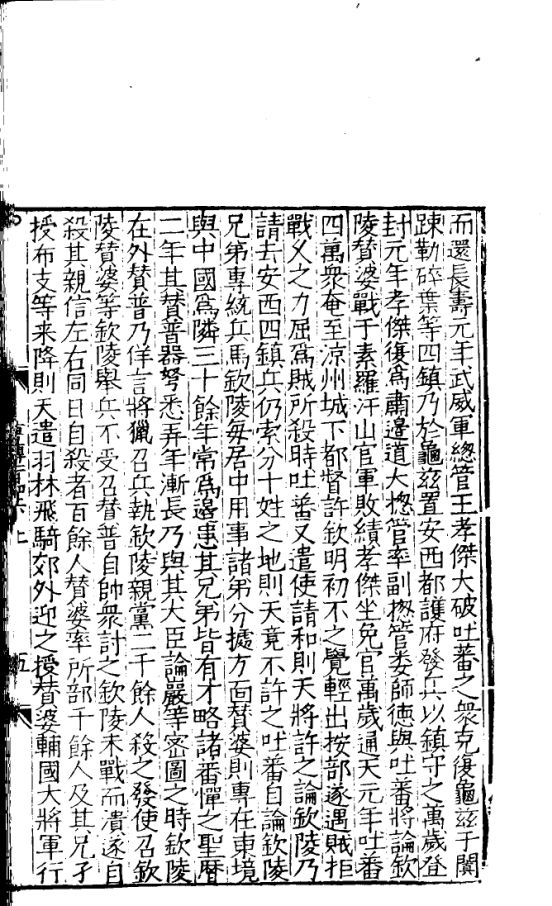 而還長壽元年武威軍緫管王孝傑大破吐蕃之衆克復龜兹于闐
踈勒碎葉等四鎮乃於龜兹置安西都護府發兵以鎮守之萬歲登
封元年孝傑復爲肅邊道大揔管率副揔管婁師德與吐蕃將論欽
陵賛婆戰于素羅汗山官軍敗績孝傑坐免官萬歲通天元年吐蕃
四萬衆奄至凉州城下都督許欽明初不之覺輕出按部遂遇賊拒
戰乆之力屈爲賊所殺時吐蕃又遣使請和則天將許之論欽陵乃
請去安西四鎮兵仍索分十姓之地則天竟不許之吐蕃自論欽陵
兄弟專統兵馬欽陵每居中用事諸弟分據方面賛婆則專在東境
與中國爲隣三十餘年常爲邊患其兄弟皆有才略諸蕃憚之聖曆
二年其賛普器弩悉弄年漸長乃與其大臣論嚴等密圖之時欽陵
在外賛普乃佯言將獵召兵執欽陵親黨二千餘人殺之發使召欽
陵賛婆等欽陵舉兵不受召賛普自帥衆討之欽陵未戰而潰遂自
殺其親信左右同日自殺者百餘人賛婆率所部千餘人及其兄子
授布支等来降則天遣羽林飛騎郊外迎之授賛婆輔國大將軍行
上
五